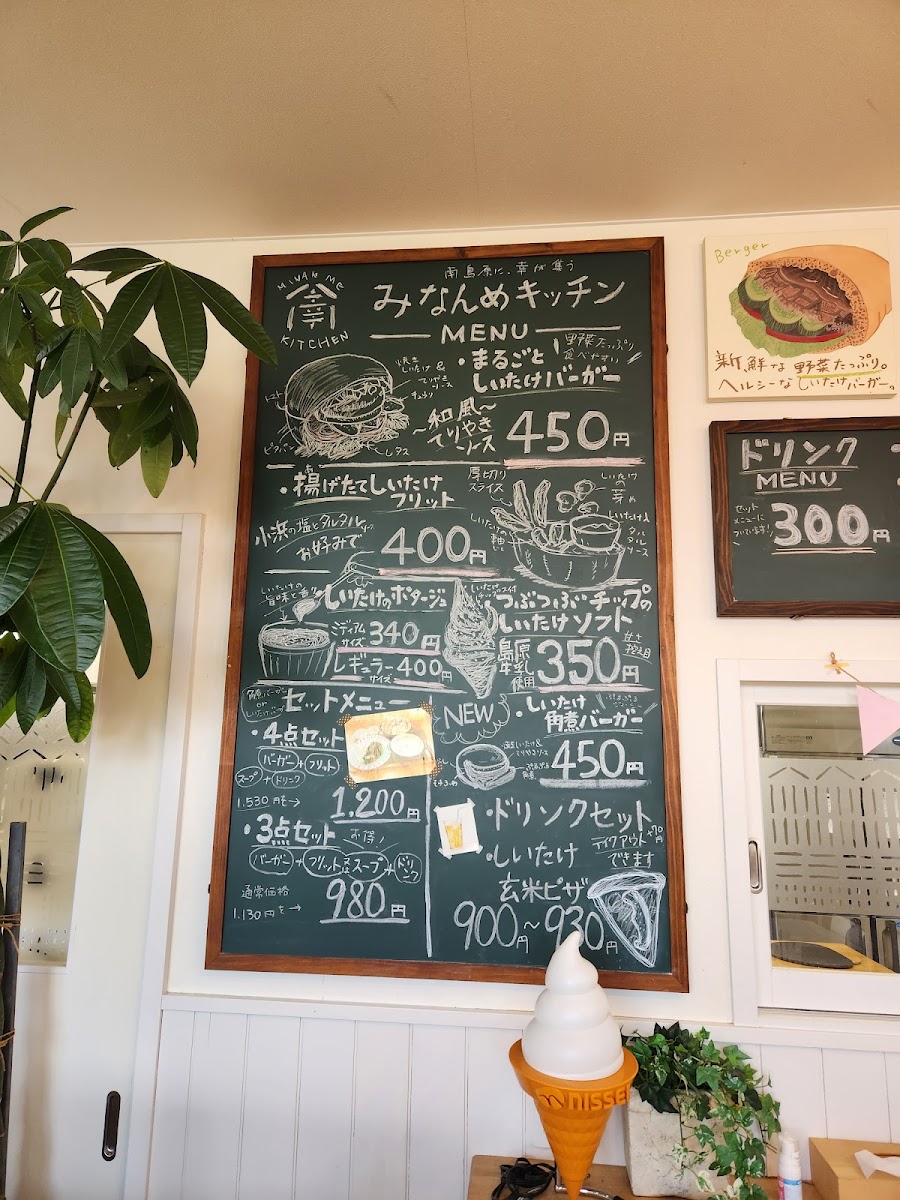 MINAMME
KITCHEN
南島原に、幸が集う
みなんめキッチン
MENU
・まるごと
しいたけバーガー
野菜たっぷり
食べやすい
焼き
しいたけ&
てりやき
ソース
トマト
ピタパン
レタス
〜和風〜
てりやき
ソース
450円
・揚げたてしいたけ
フリット
小浜の塩とタルタルソース
お好みで
400円
厚切り
スライス
しいたけの
しいたけ入
タルタル
ソース
しいたけの
旨味と香り
しいたけのポタージュ
ミディアム
サイズ 340円
レギュラー
サイズ 400円
つぶつぶチップの
しいたけソフト
島原
牛乳
使用
350円
甘さ
控え目
セットメニュー
・4点セット
バーガー+フリット
スープ+ドリンク
1.530円を→
1.200円
・3点セット お得!
バーガー+フリット又はスープ+ドリンク
通常価格
1.130円を→
980円
NEW
・しいたけ
角煮バーガー
450円
・ドリンクセット
テイクアウト+70円
できます
・しいたけ
玄米ピザ
900円〜930円
Berger
新鮮な野菜たっぷり。
ヘルシーなしいたけバーガー。
ドリンク
MENU
セット
メニューに
ついています!
300円
NISSEI